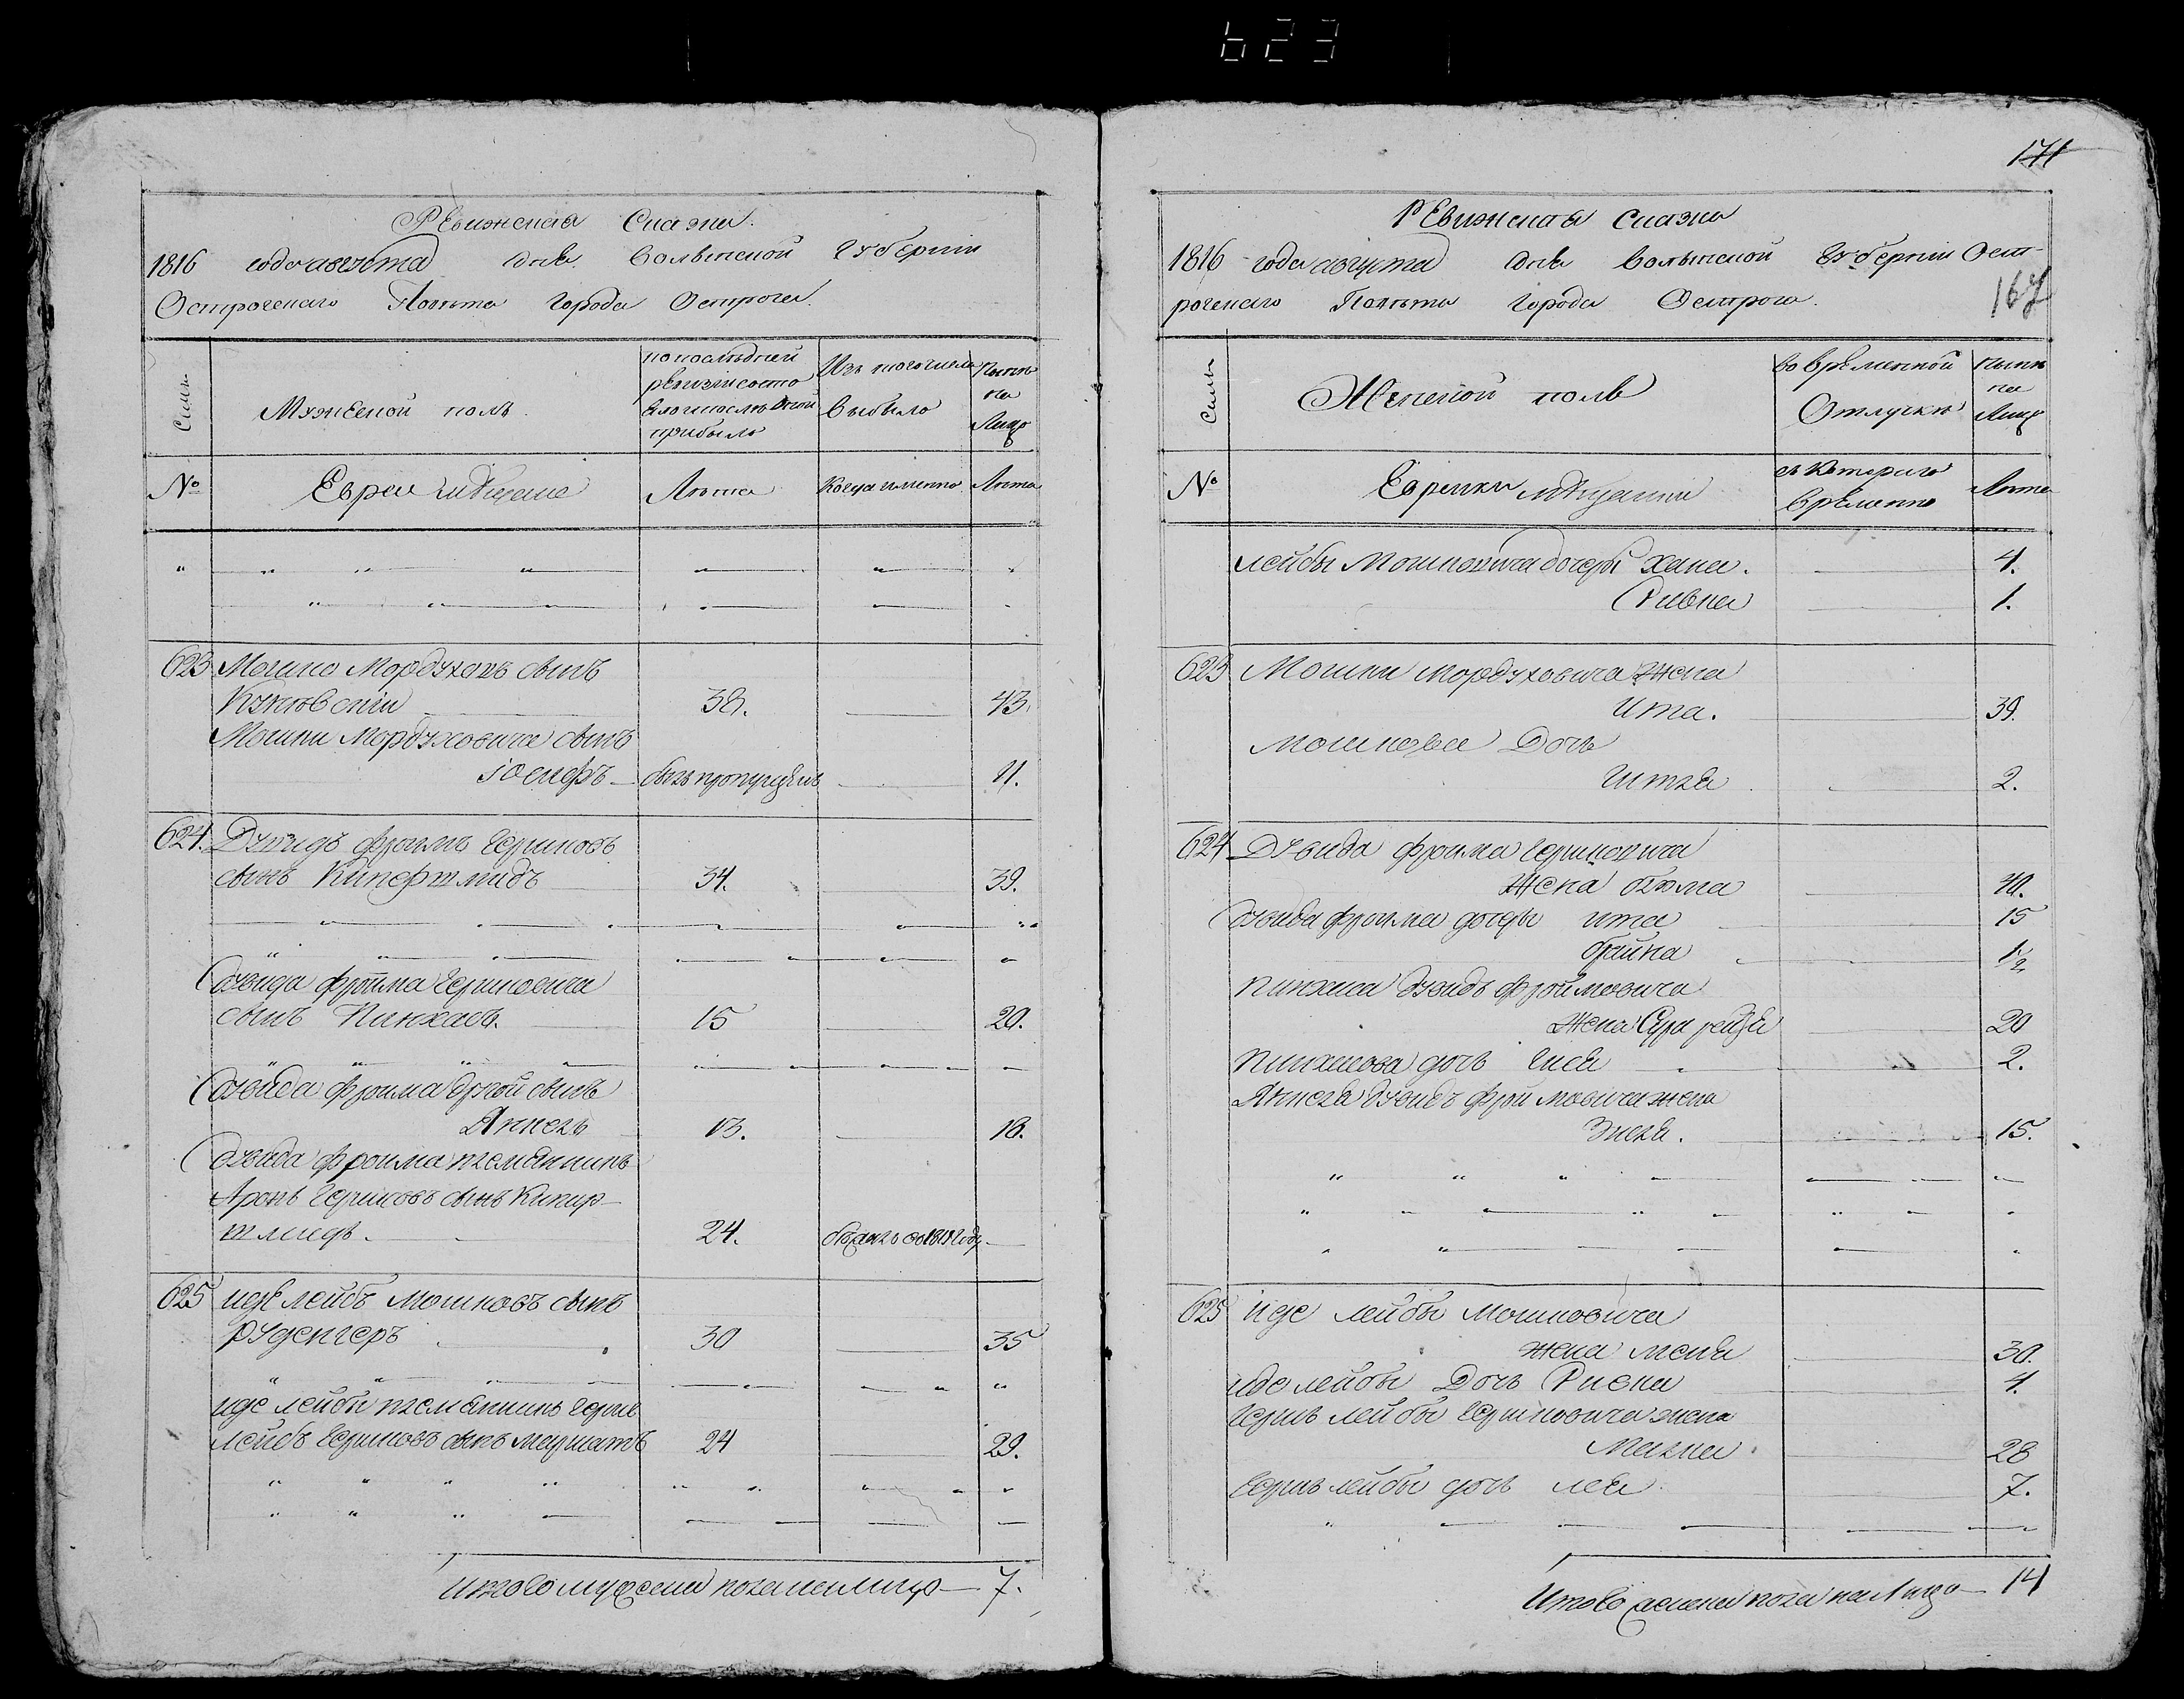 623
Ревижская Сказка.
1816 года августа дня Волынской Губернии
Острогскаго Повѣта города Острога.
Семьи
Мужеской полъ.
по послѣдней
ревизіи состо
яло и послѣ оной
прибыло
Изъ того числа
выбыло
Нынѣ
на
Лицо
№
Евреи мѣщане
Лѣта
Когда именно
Лѣта
623 Мошко Мордуховъ сынъ
38. 43.
Мошки Мордуховича сынъ
іосифъ — былъ пропущенъ 11.
624. Дувидъ фроимъ Гершковъ
сынъ Кипершмидъ 34. 39.
Дувида фройма Гершковича
сынъ Пинхасъ. 15 20.
Дувида фроима другой сынъ
Янкель 13. 18.
Дувида фроима племянникъ
Аронъ Гершковъ сынъ Кипер-
шмидъ. 24. годУ
625 иде лейбъ мошковъ сынъ
руденгеръ 30 35
иде лейбы племянникъ герш
лейбъ Гершковъ сынъ 24 29.
Итого мужеска пола на лицо — 7.
171
Ревижская Сказка
1816 года августа дня Волынской Губерніи Ост-
рогскаго Повѣта города Острога.
167
Семьи
Женской полъ
во временной
Отлучкѣ
Нынѣ
на
Лицо
№
Еврейки мѣщанки
съ Котораго
времени
Лѣта
лейбы Мошковича дочери хана. 4.
Ривка 1.
623 Мошки Мордуховича жена
Ита. 39.
Мошкова Дочь
2.
624 Дувида фроима Гершковича
жена 40.
Дувида фроима дочери ита 15
брайна 1/2
пинхаса Дувидъ фроймовича
жена Сура рейзя 20
пинхасова дочь 2.
Янкеля Дувидъ фроймовича жена
Энеля. 15.
625 иде лейбы мошковича
жена меня 30.
иде лейбы Дочь Ривка 4.
Гершъ лейбы Гершковича жена
Малка. 28
Гершъ лейбы дочь лея 7.
Итого женска пола на Лицо — 14